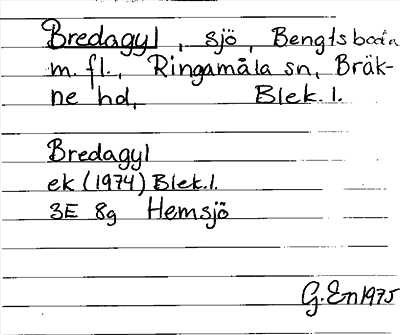 Bredagyl, sjö, Bengtsboda
m. fl., Ringamåla sn, Bräk-
ne hd, Blek. l.
Bredagyl
ek (1974) Blek. l.
3E 8g Hemsjö
G. En 1975